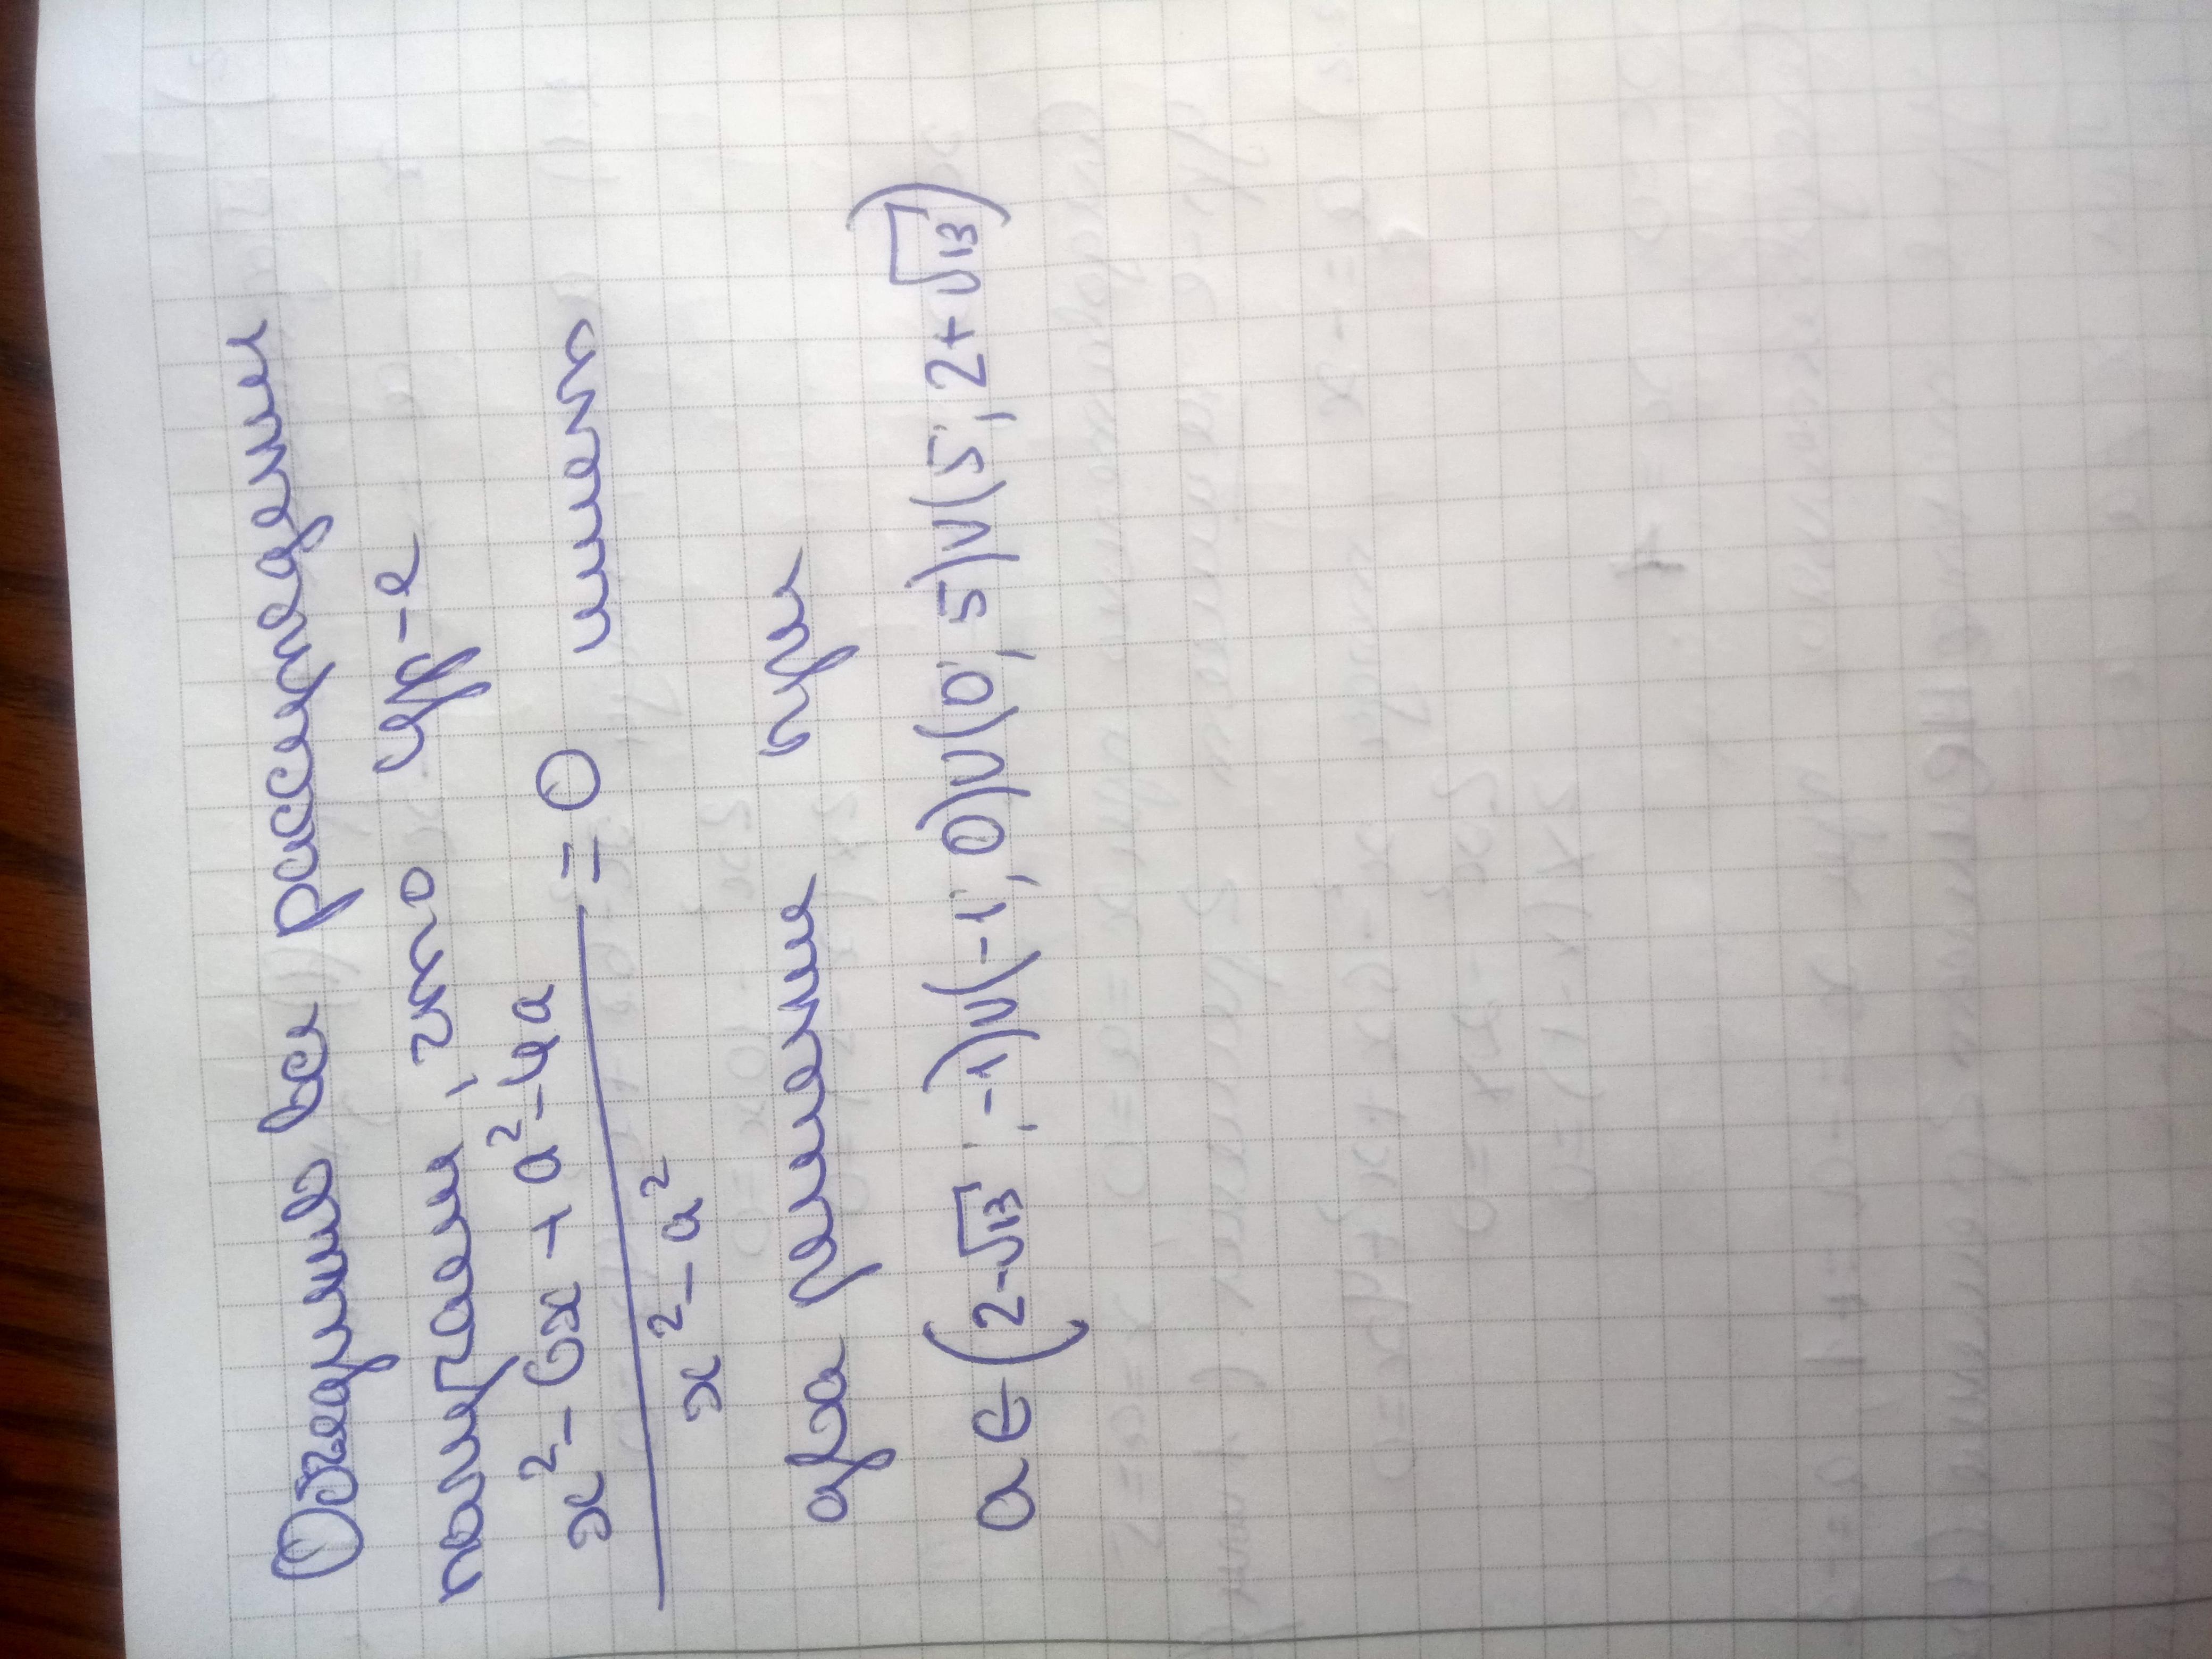 Объединив все рассуждения
получаем, что ур-е
x² - 6x + a² - 4a
x² - a² = 0 имеет
два решения при
a ∈ (2-√13; -1)∪(-1; 0)∪(0; 5)∪(5; 2+√13)